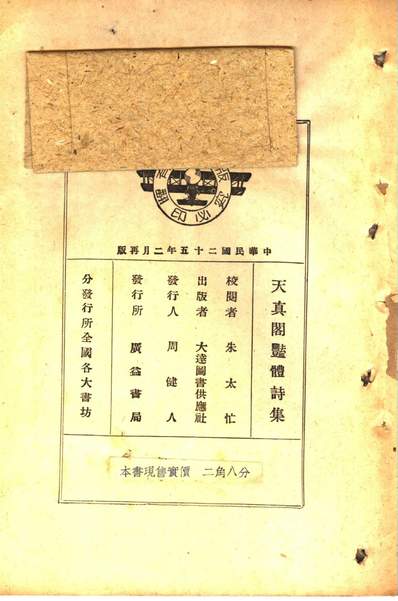 翻印必究
中華民國二十五年二月再版
天真閣豔體詩集
校閱者 朱太忙
出版者 大達圖書供應社
發行人 周健人
發行所 廣益書局
分發行所全國各大書坊
本書現售實價 二角八分